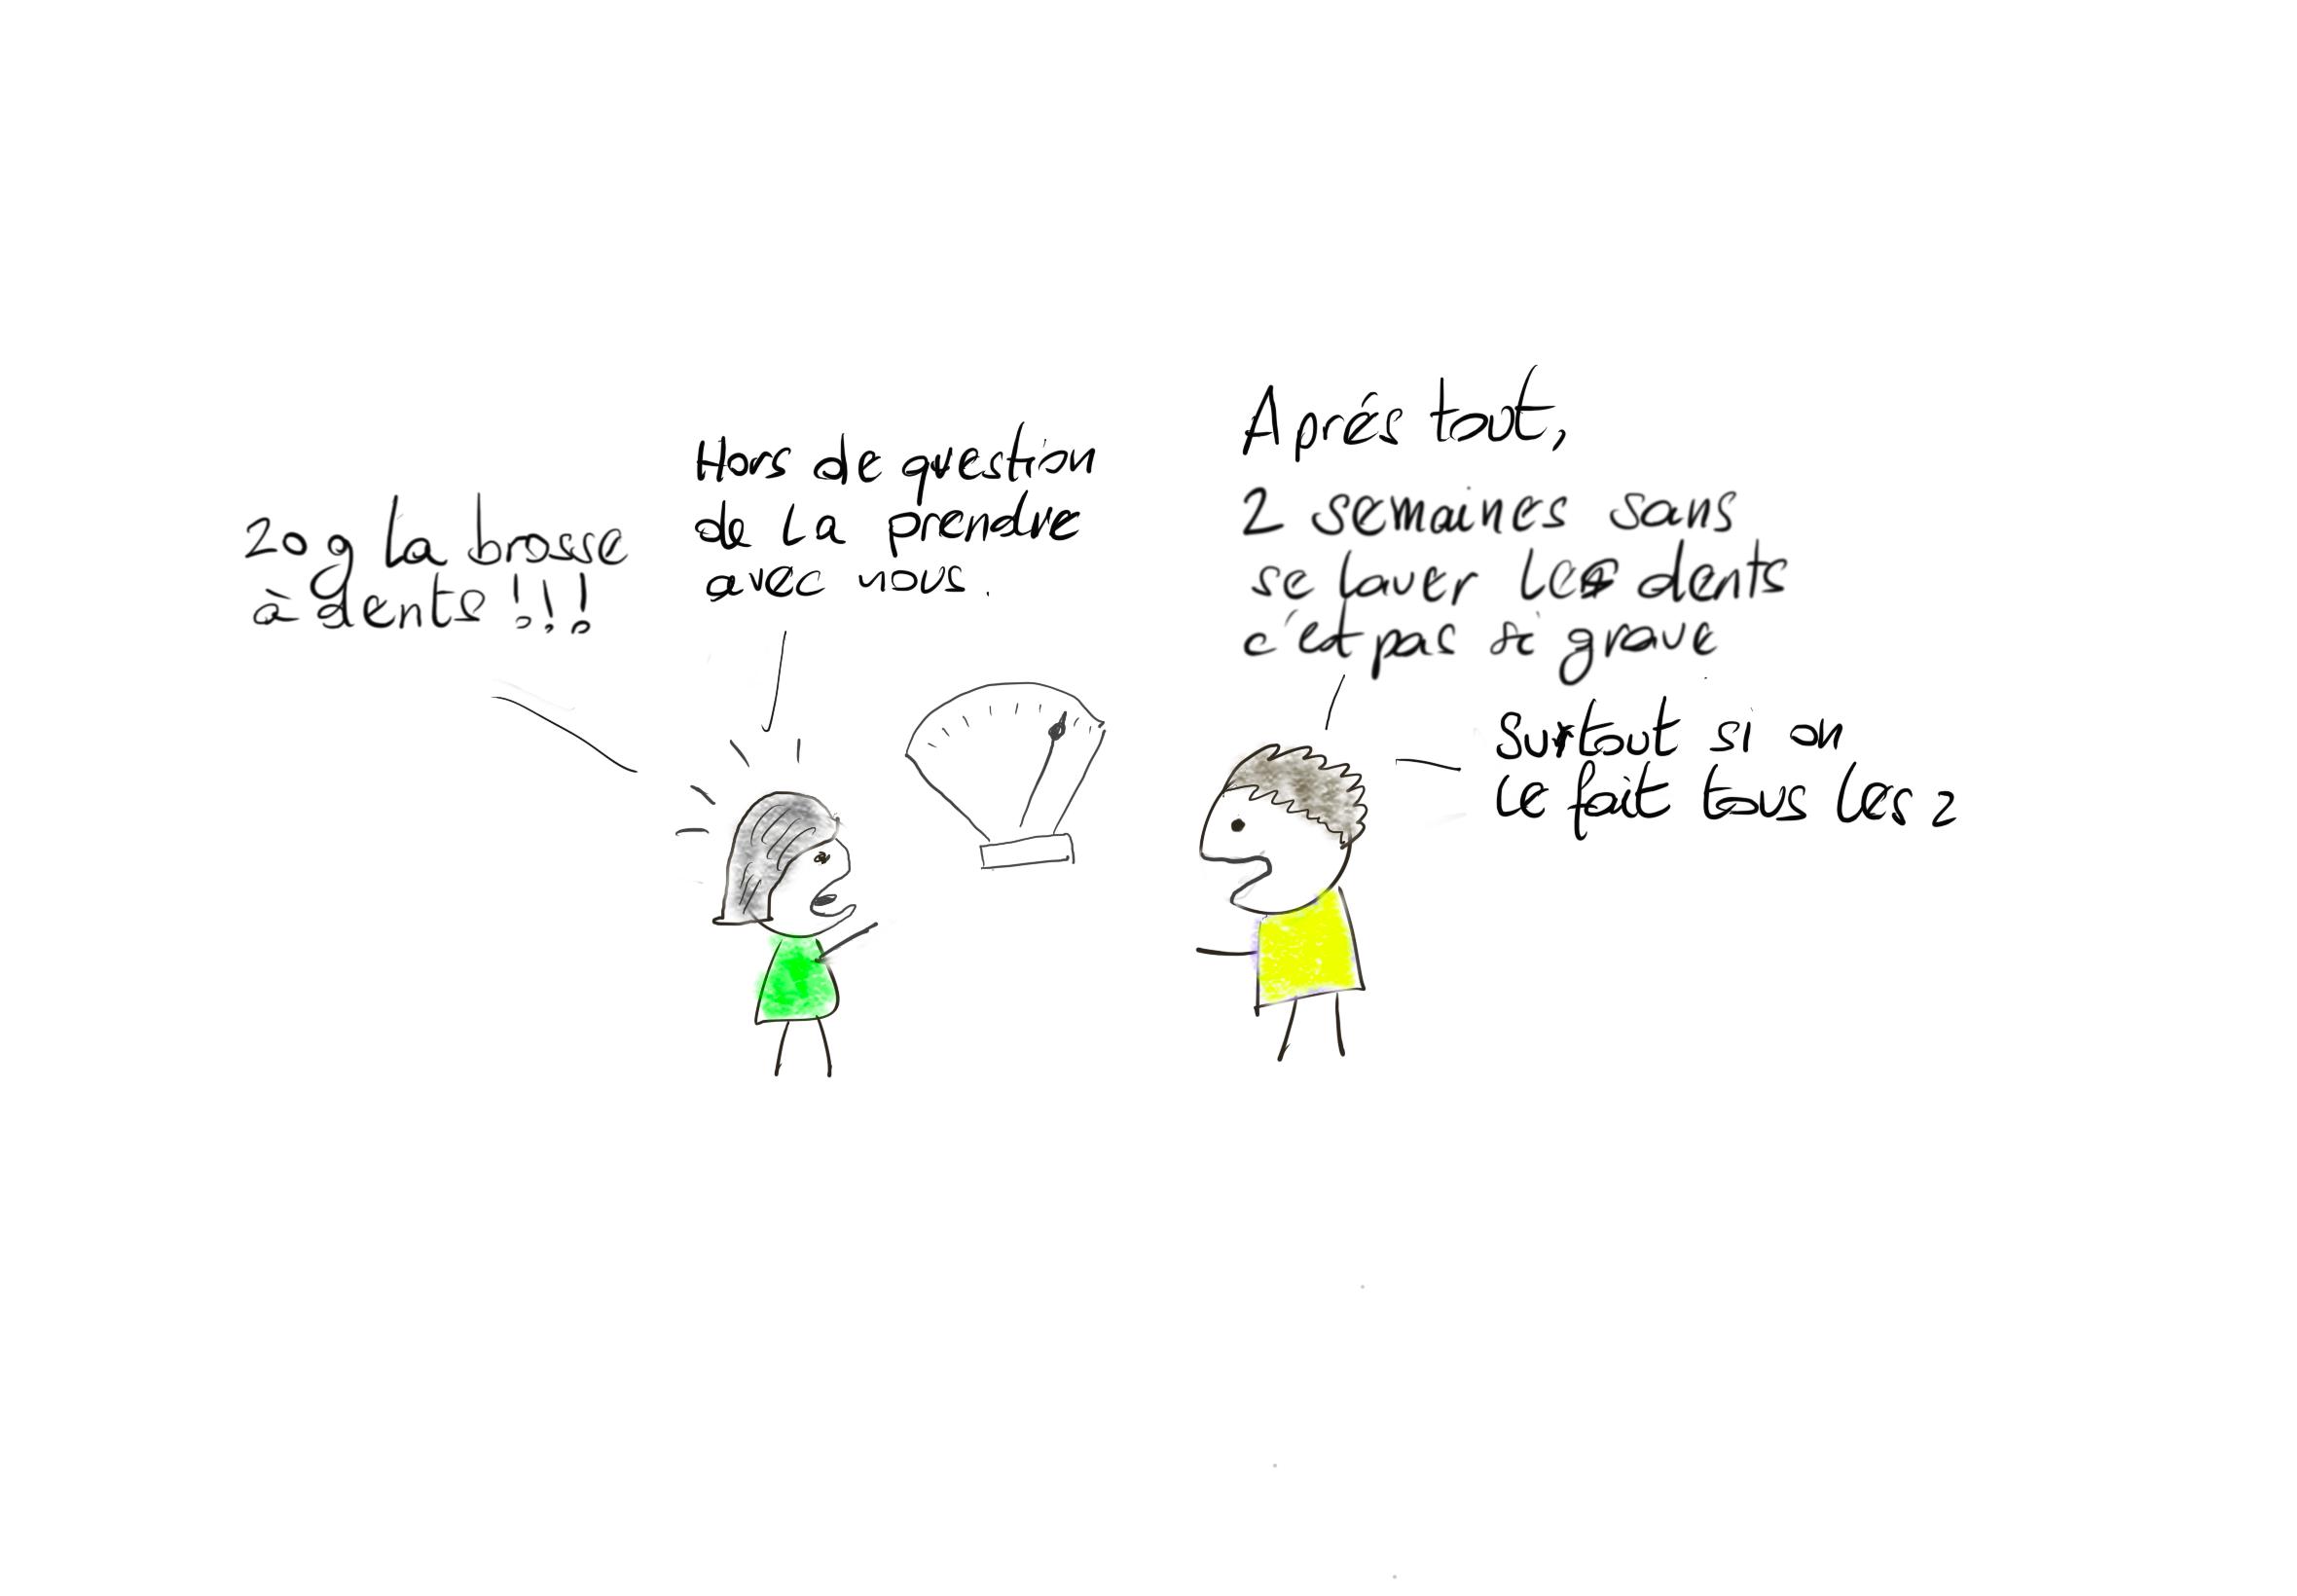 20g la brosse
à dents !!!
Hors de question
de la prendre
avec nous.
Aprés tout,
2 semaines sans
se laver les dents
c'est pas si grave
Surtout si on
le fait tous les 2